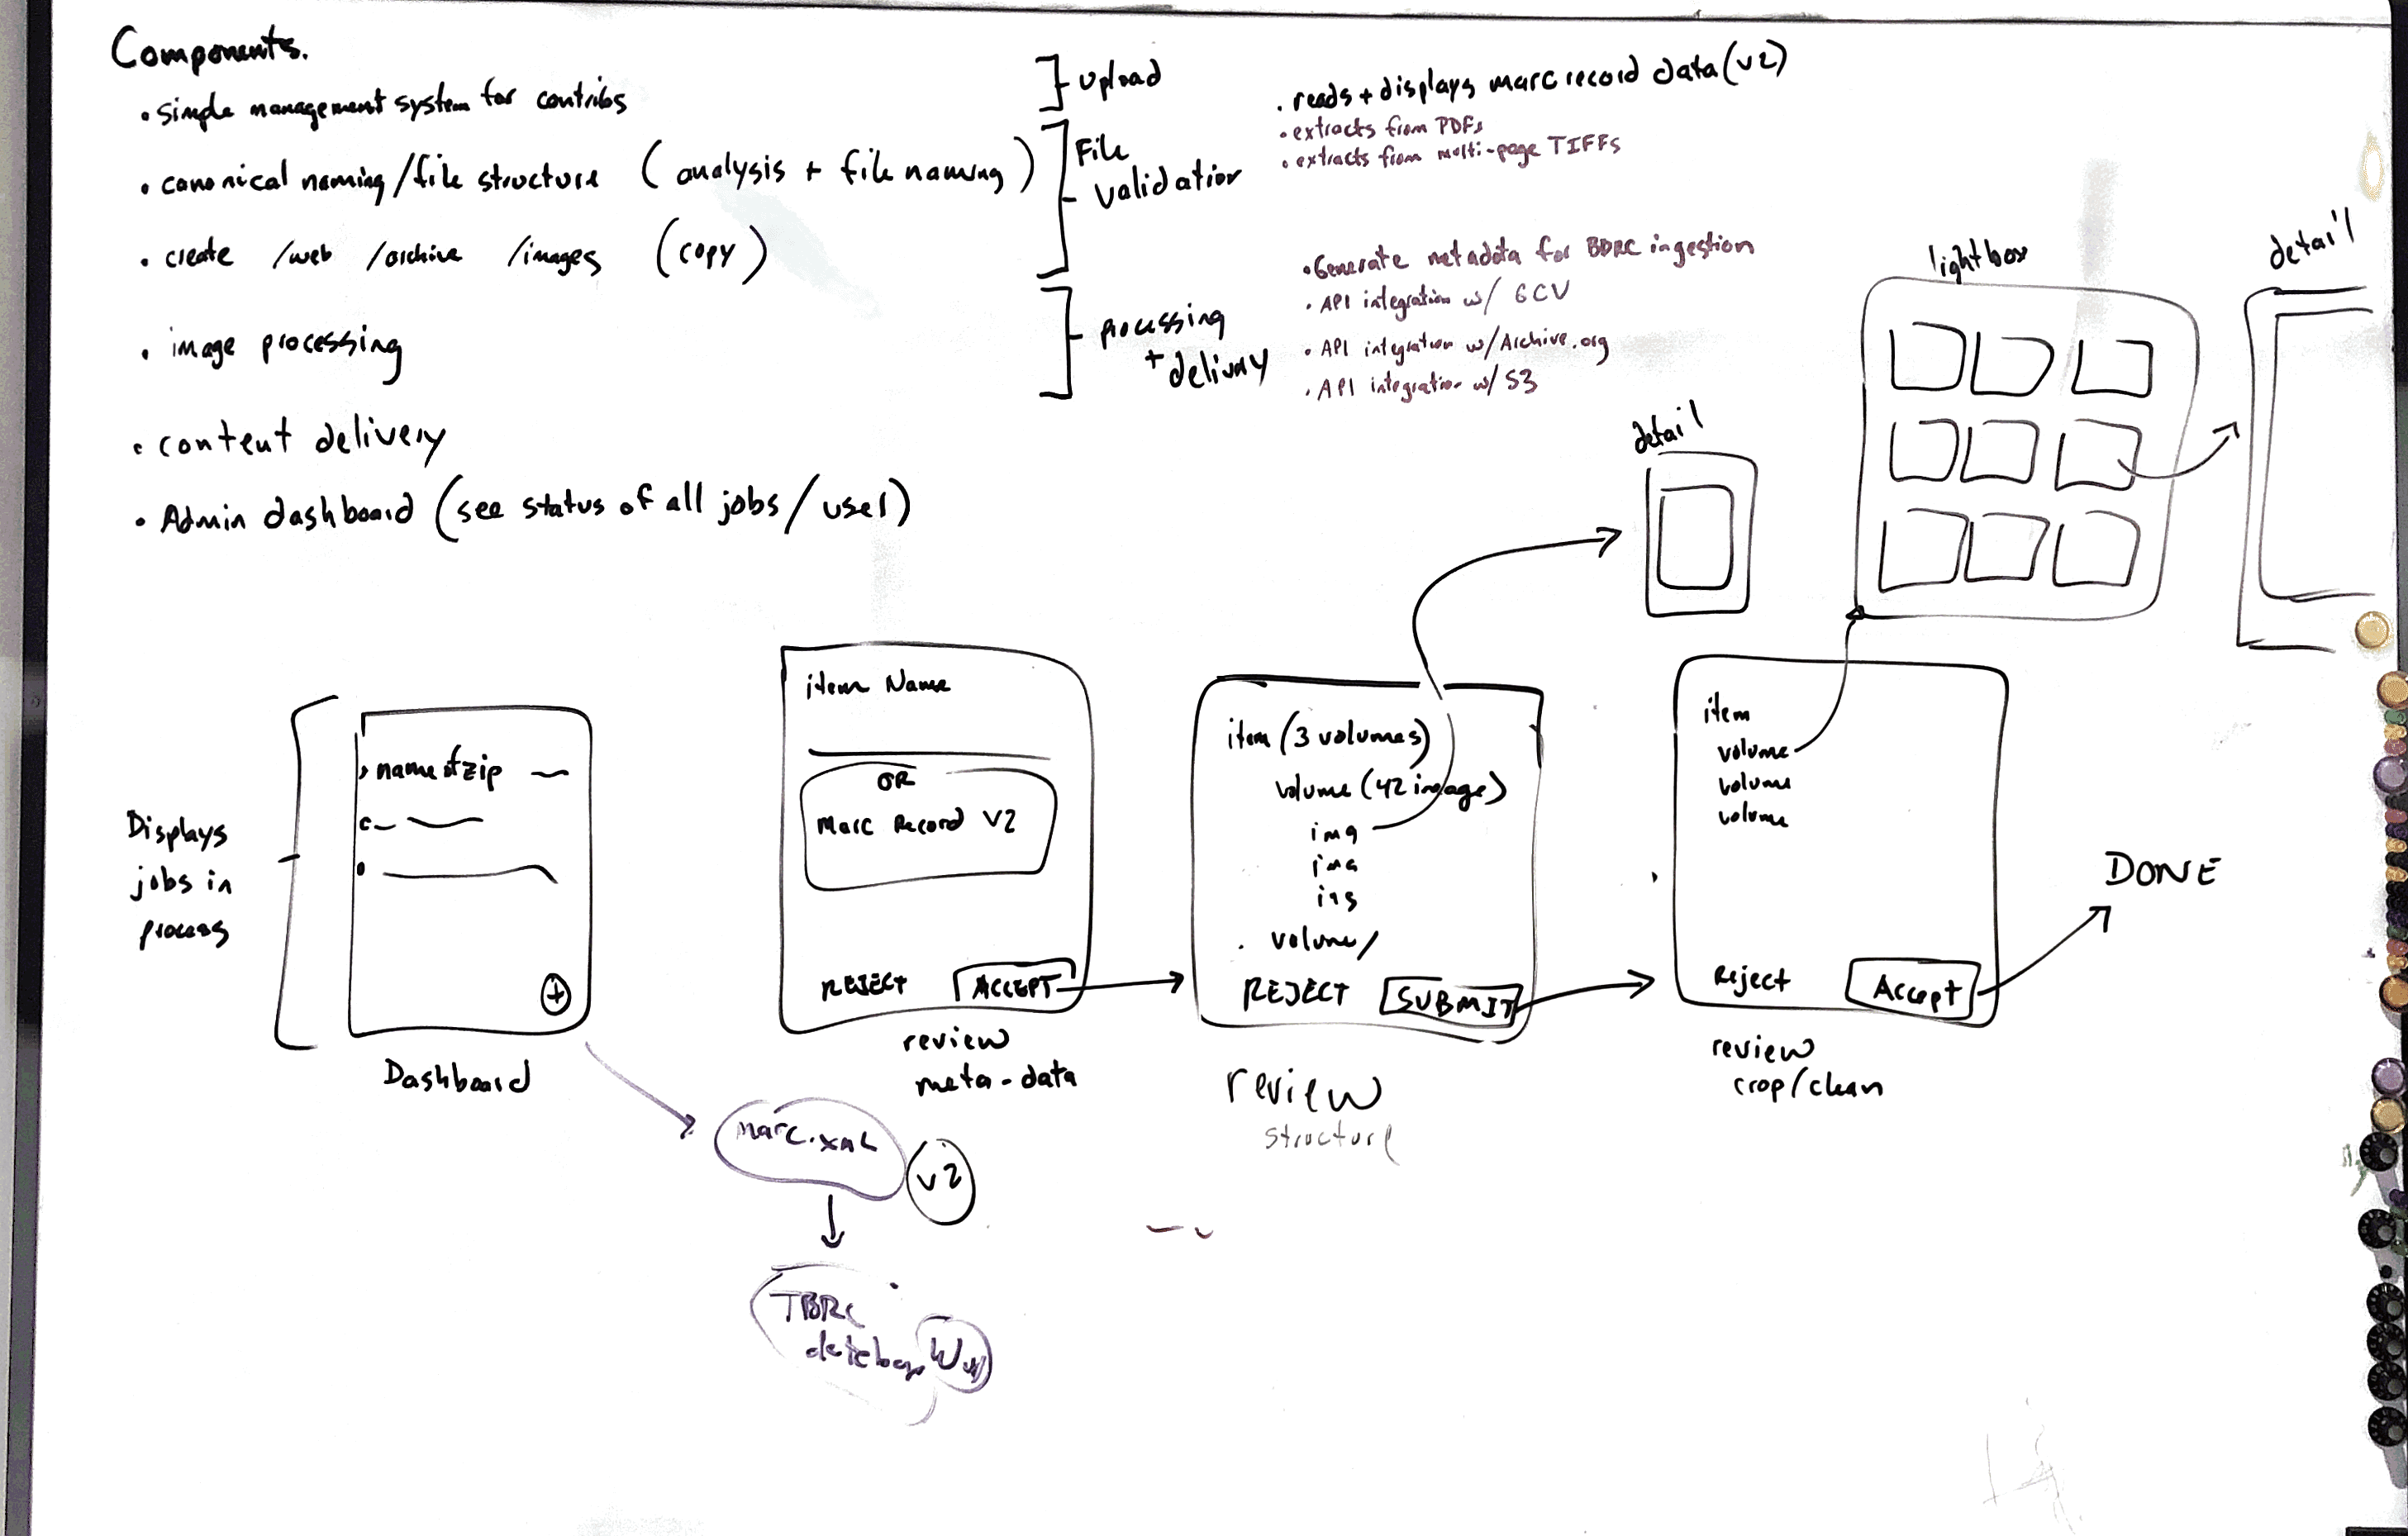 Components.
• simple management system for contribs
• canonical naming/file structure (analysis + file naming)
• create /web /archive /images (copy)
• image processing
• content delivery
• Admin dashboard (see status of all jobs/user)
upload
File
validation
processing
+ delivery
• reads + displays marc record data (v2)
• extracts from PDFs
• extracts from multi-page TIFFs
• Generate metadata for BDRC ingestion
• API integration w/ GCV
• API integration w/Archive.org
• API integration w/ S3
detail
lightbox
detail
Displays
jobs in
process
name of zip
+
Dashboard
item Name
OR
Marc Record V2
REJECT ACCEPT
review
meta-data
item (3 volumes)
volume (42 image)
img
img
volume/
REJECT SUBMIT
review
structure
item
volume
volume
volume
Reject Accept
review
crop/clean
DONE
marc.xml
v2
TBRC